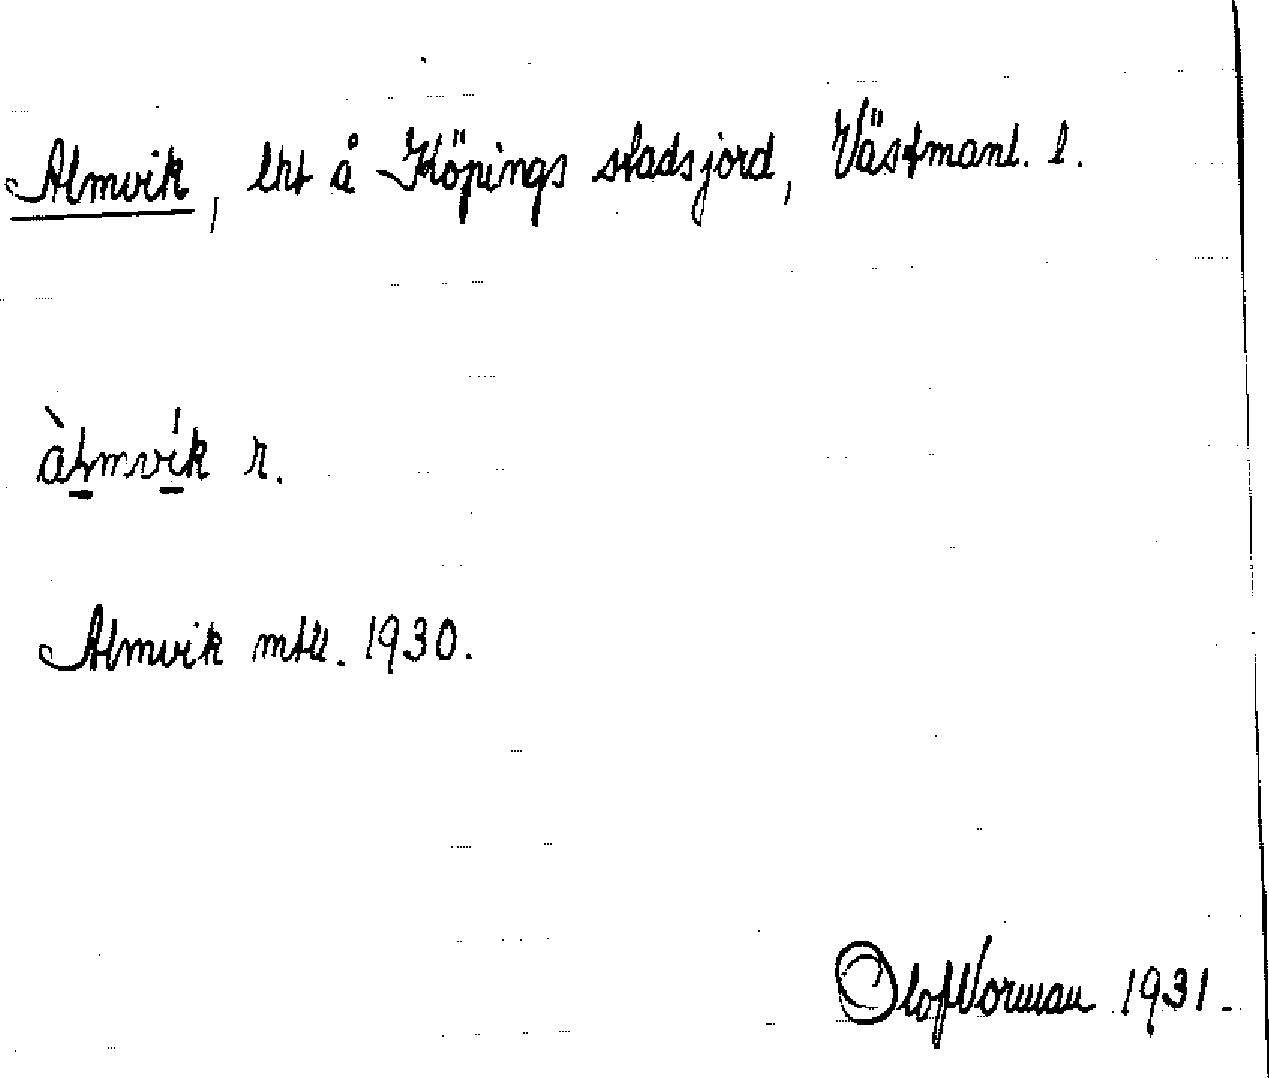 Almvik, lht å Köpings stadsjord, Västmanl. l.
àlmvik r.
Almvik mtll. 1930.
Olof Norman 1931.